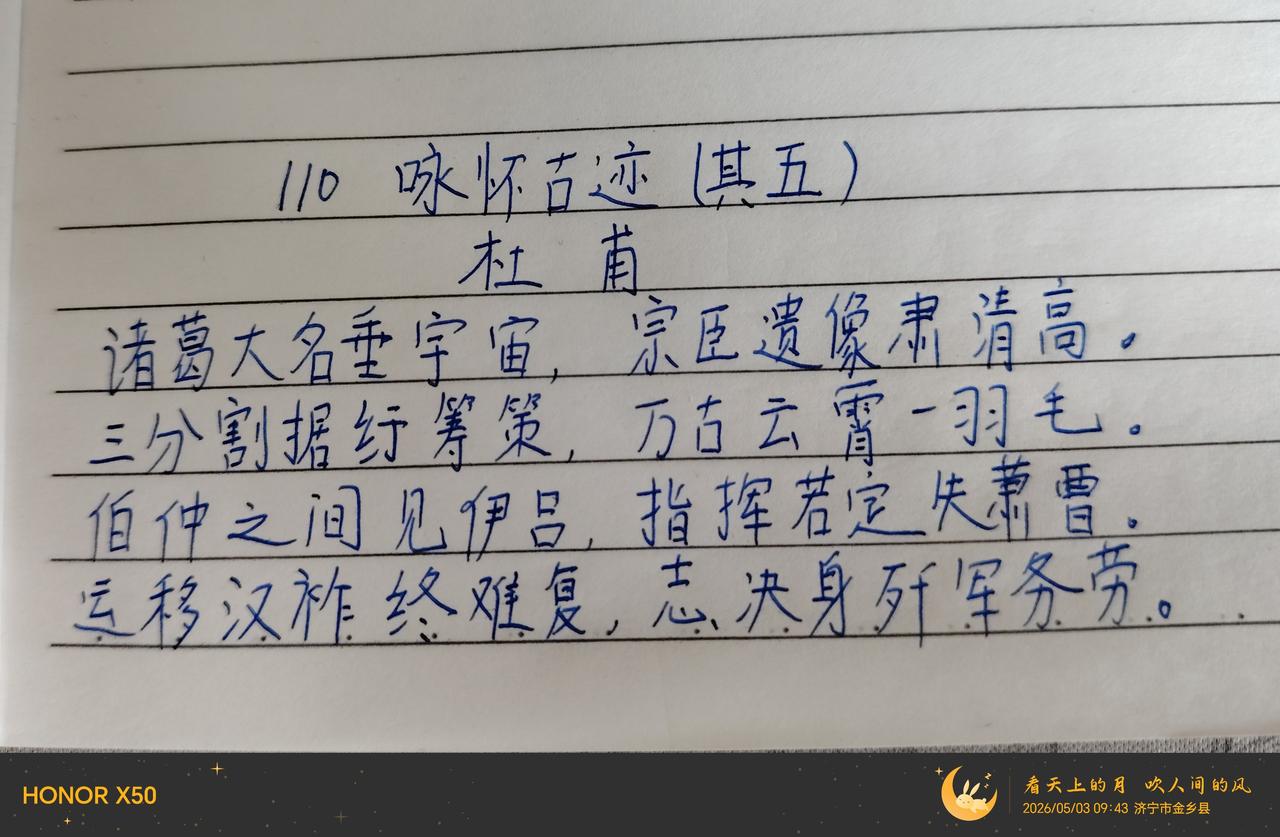 110 咏怀古迹(其五)
杜 甫
诸葛大名垂宇宙, 宗臣遗像肃清高。
三分割据纡筹策, 万古云霄一羽毛。
伯仲之间见伊吕, 指挥若定失萧曹。
运移汉祚终难复, 志决身歼军务劳。
HONOR X50
看天上的月 吹人间的风
2026/05/03 09:43 济宁市金乡县